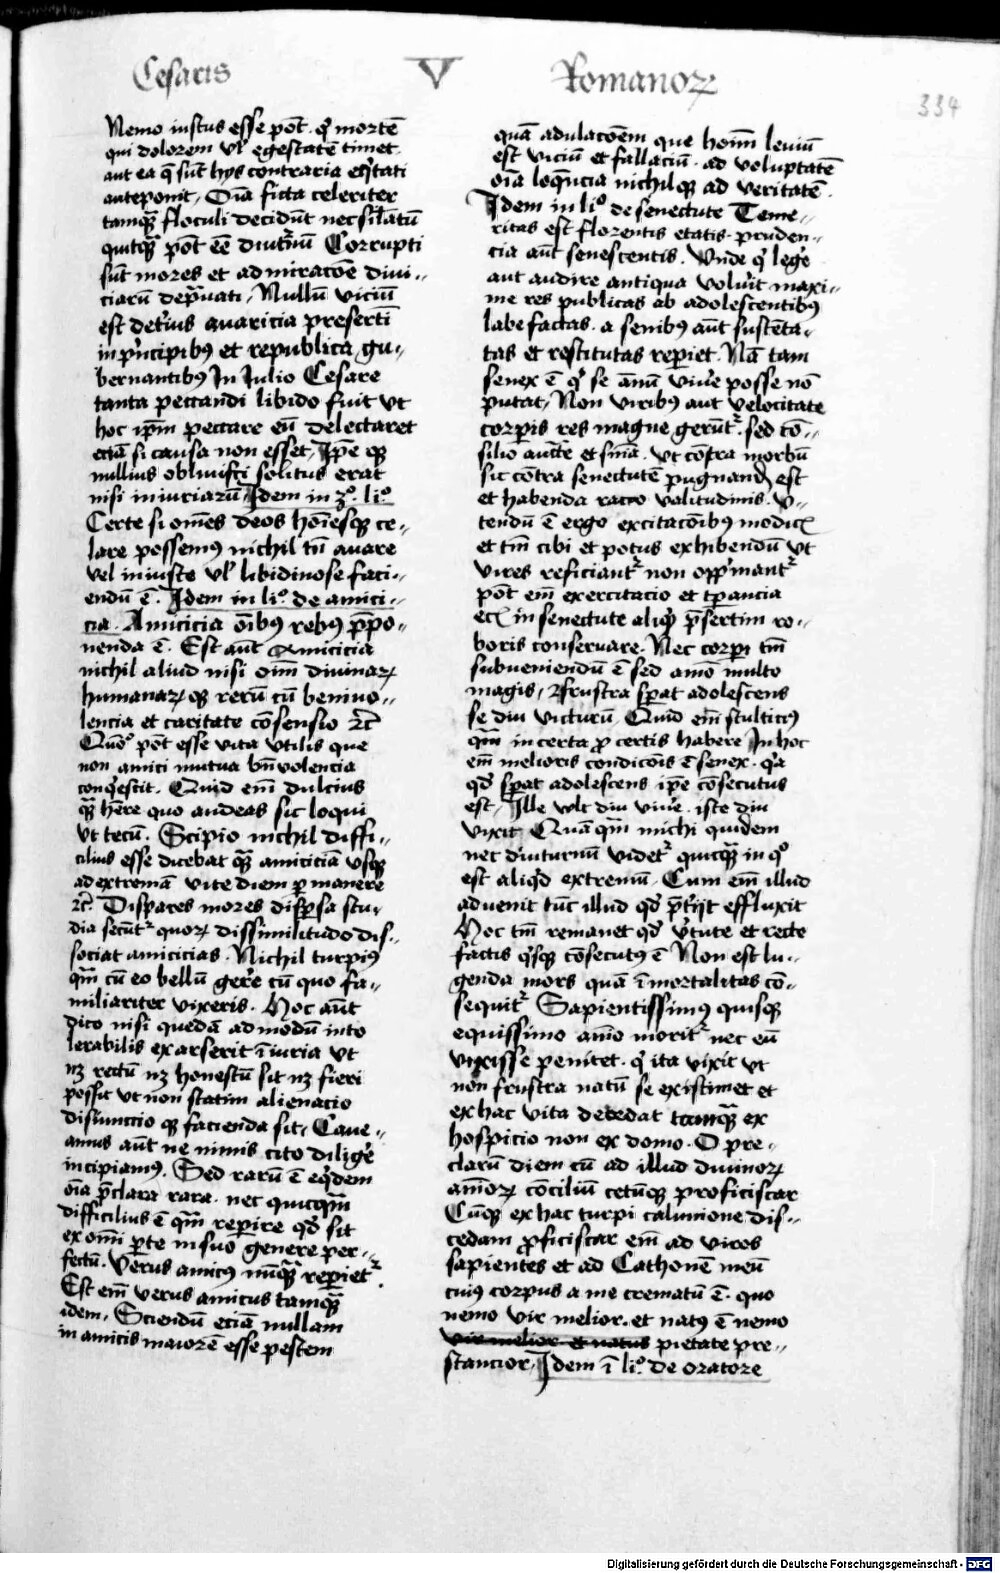 Cesaris V Romanoꝝ
334
Nemo iustus esse pōt · qͥ mortē
qui dolorem vl̕ egestatē timet·
aut ea q̄ sūt hys contraria eqͥtati
anteponit, Oīa ficta celeriter
tamqᷓ floculi decidūt nec sīlatū
quitqᷓ pōt eē diutͥnū Corrupti
sūt mores et admiracōe divi-
ciarū depͣuati, Nullū viciū
est det̕ius auaricia presertī
in pͥncipibꝰ et republica gu-
bernantibꝰ In Iulio Cesare
tanta peccandi libido fuit vt
hoc ip̄m peccare eū delectaret
eciā si causa non esset, Ip̄e qꝫ
nullius obliuisci solitus erat
nisi iniuriarū Idem in 3º liº
Certe si om̄es deos hoīesqꝫ ce-
lare possemꝰ nichil tn̄ auare
vel iniuste vl̕ libidinose faci-
endū ē. Idem in liº de amici-
cia. Amicicia oībꝰ rebꝰ p̄po-
nenda ē. Est aūt Amicicia
nichil aliud nisi oīm diuinaꝝ
humanaꝝ qꝫ rerū cū beniuo-
lencia et caritate cōsensio ⁊c̄
Quōº pōt esse vita vtilis que
non amici mutua bn̄volencia
conqͥescit. Quid em̄ dulcius
qᷓ hēre quo audeas sic loqui
vt tecū. Scipio nichil diffi-
cilius esse dicebat qᷓ amiciciā vsqꝫ
ad extremā vite diem ꝑmanere
⁊c̄. Dispares mores disp̄sa stu-
dia secūtʳ quoꝝ dissimilitudo dis-
sociat amicicias. Nichil turpiꝰ
qᷓm cū eo bellū ger̕e cū quo fa-
miliariter vixeris. Hoc aūt
dico nisi quedā ad modū into
lerabilis exarserit īiuria vt
nꝫ rectū nꝫ honestū sit nꝫ fieri
possit vt non statim alienacio
disiunccio qꝫ facienda sit, Caue-
amus aūt ne nimis cito dilig̕e
incipiamꝰ. Sed rarū ē eqͥdem
oīa p̄clara rara. nec quicqᷓm
difficilius ē qᷓm reperire qd̕ sit
ex omī ꝑte in suo genere per-
fectū. Verus amicꝰ nūqᷓ reperietʳ.
Est em̄ verus amicus tamqᷓ
idem, Sciendū eciā nullam
in amicis maiorē esse pestem
quā adulacōem que hoīm leuiū
est viciū et fallaciū· ad voluptatē
oīa loqūcia nichilqꝫ ad veritatē.
Idem in liº de senectute Teme-
ritas est florentis etatis · pruden-
cia aūt senescentis. Vnde qͥ leg̕e
aut audire antiqua volūit maxi-
me res publicas ab adolescentibꝰ
labefactas · a senibꝰ aūt sustēta-
tas et restitutas reperiet. Nā tam
senex ē qͥ se ānū viv̕e posse nō
putat, Non viribꝰ aut velocitate
corꝑis res magne gerūtʳ. sed cō-
silio auctͭe et sn̄ia. Vt cōtra morbū
sic cōtra senectutē pugnandū est
et habenda racio valitudinis. V-
tendū ē ergo excitacōibꝰ modicꝭ
et tm̄ cibi et potus exhibendū vt
vires reficiantʳ non opp̕mantʳ
pōt em̄ exercitacio et tꝑancia
eciā in senectute aliqͥd p̄sertim ro-
boris conseruare. Nec corꝑi tm̄
subueniendū ē sed aīmo multo
magis, ⁊ frustra sꝑat adolescens
se diu victurū Quid em̄ stulticiꝰ
qᷓm incerta ꝓ certis habere In hoc
em̄ melioris condicōis ē senex · qͥa
qd̕ sꝑat adolescens ip̄e cōsecutus
est, Ille vlt diu viv̕e. iste diu
vixit Quāqᷓm michi quidem
nec diuturnū videtʳ quicqᷓ in qͦ
est aliqͥd extremū. Cum em̄ illud
aduenit tūc illud qd̕ p̄t̕ijt effluxit
Hoc tm̄ remanet qd̕ v̕tute et recte
factis qͥsqꝫ cōsecutꝰ ē Non est lu-
genda mors quā īmortalitas cō-
sequitʳ Sapientissimꝰ quisqꝫ
equissimo aīmo moritʳ nec eū
vixisse penitet · qͥ ita vixit vt
non frustra natū se existimet et
ex hac vita decedat tamqᷓ ex
hospicio non ex domo. O pre-
clarū diem cū ad illud diuinoꝝ
aīmoꝝ cōciliū cetūqꝫ proficiscar
Cūqꝫ ex hac turpi caluuione dis-
cedam ꝓficiscar em̄ ad viros
sapientes et ad Cathonē meū
cuiꝰ corpus a me crematū ē. quo
nemo vir melior. et natꝰ ē nemo
vir melior et natus pietate pre-
stancior, Idem ī liº de oratore
Digitalisierung gefördert durch die Deutsche Forschungsgemeinschaft - DFG